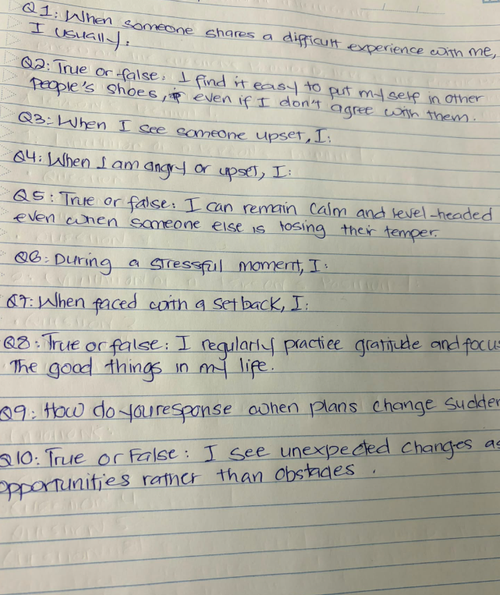 Q1: When someone shares a difficult experience with me,
I usually:
Q2: True or false: I find it easy to put myself in other
people's shoes, even if I don't agree with them.
Q3: When I see someone upset, I:
Q4: When I am angry or upset, I:
Q5: True or false: I can remain calm and level-headed
even when someone else is losing their temper.
Q6: During a stressful moment, I:
Q7: When faced with a setback, I:
Q8: True or false: I regularly practice gratitude and focus
The good things in my life.
Q9: How do you response when plans change sudden
Q10: True or False: I see unexpected changes as
opportunities rather than obstacles.